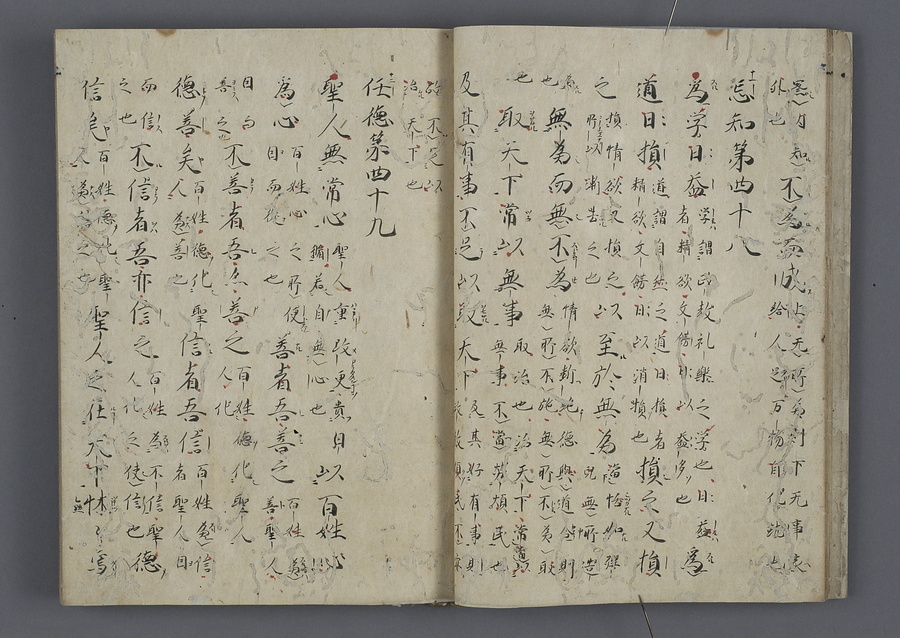 察内知
外也
不為而成
上无所為則下无事家
給人足万物自化就也
忘知第四十八
為学日益
学謂政教礼樂之学也日益
者精欲文餝日以益多也
為
道日損
道謂自然之道日損者
精欲文餝日以消損也
損之又損
之
損情欲又損之
所以漸去之也
以至於無為
當恬如嬰
兒無所造
為
也
無為而無不為
情欲断絶德與道合則
無所不施無所不為
也
取天下常以無事
取治也治天下常當以
無事不當労煩民也
及其有事不足以取天下
及其好有事則
政煩民不安
故不足以
治天下也
任德第四十九
聖人無常心
聖人重改更貴因
循若自無心也
以百姓心
為心
百姓心之所便
因而從之也
善者吾善之
百姓為
善聖人
因而
善之也
不善者吾亦善之
百姓德化聖人
化
德善矣
百姓德化聖
人為善也
信者吾信
百姓為信
者聖人因
而信
之也
不信者吾亦信之
百姓為不信聖
人化之使信也
德
信矣
百姓德化聖
聖人之在天下怵々焉